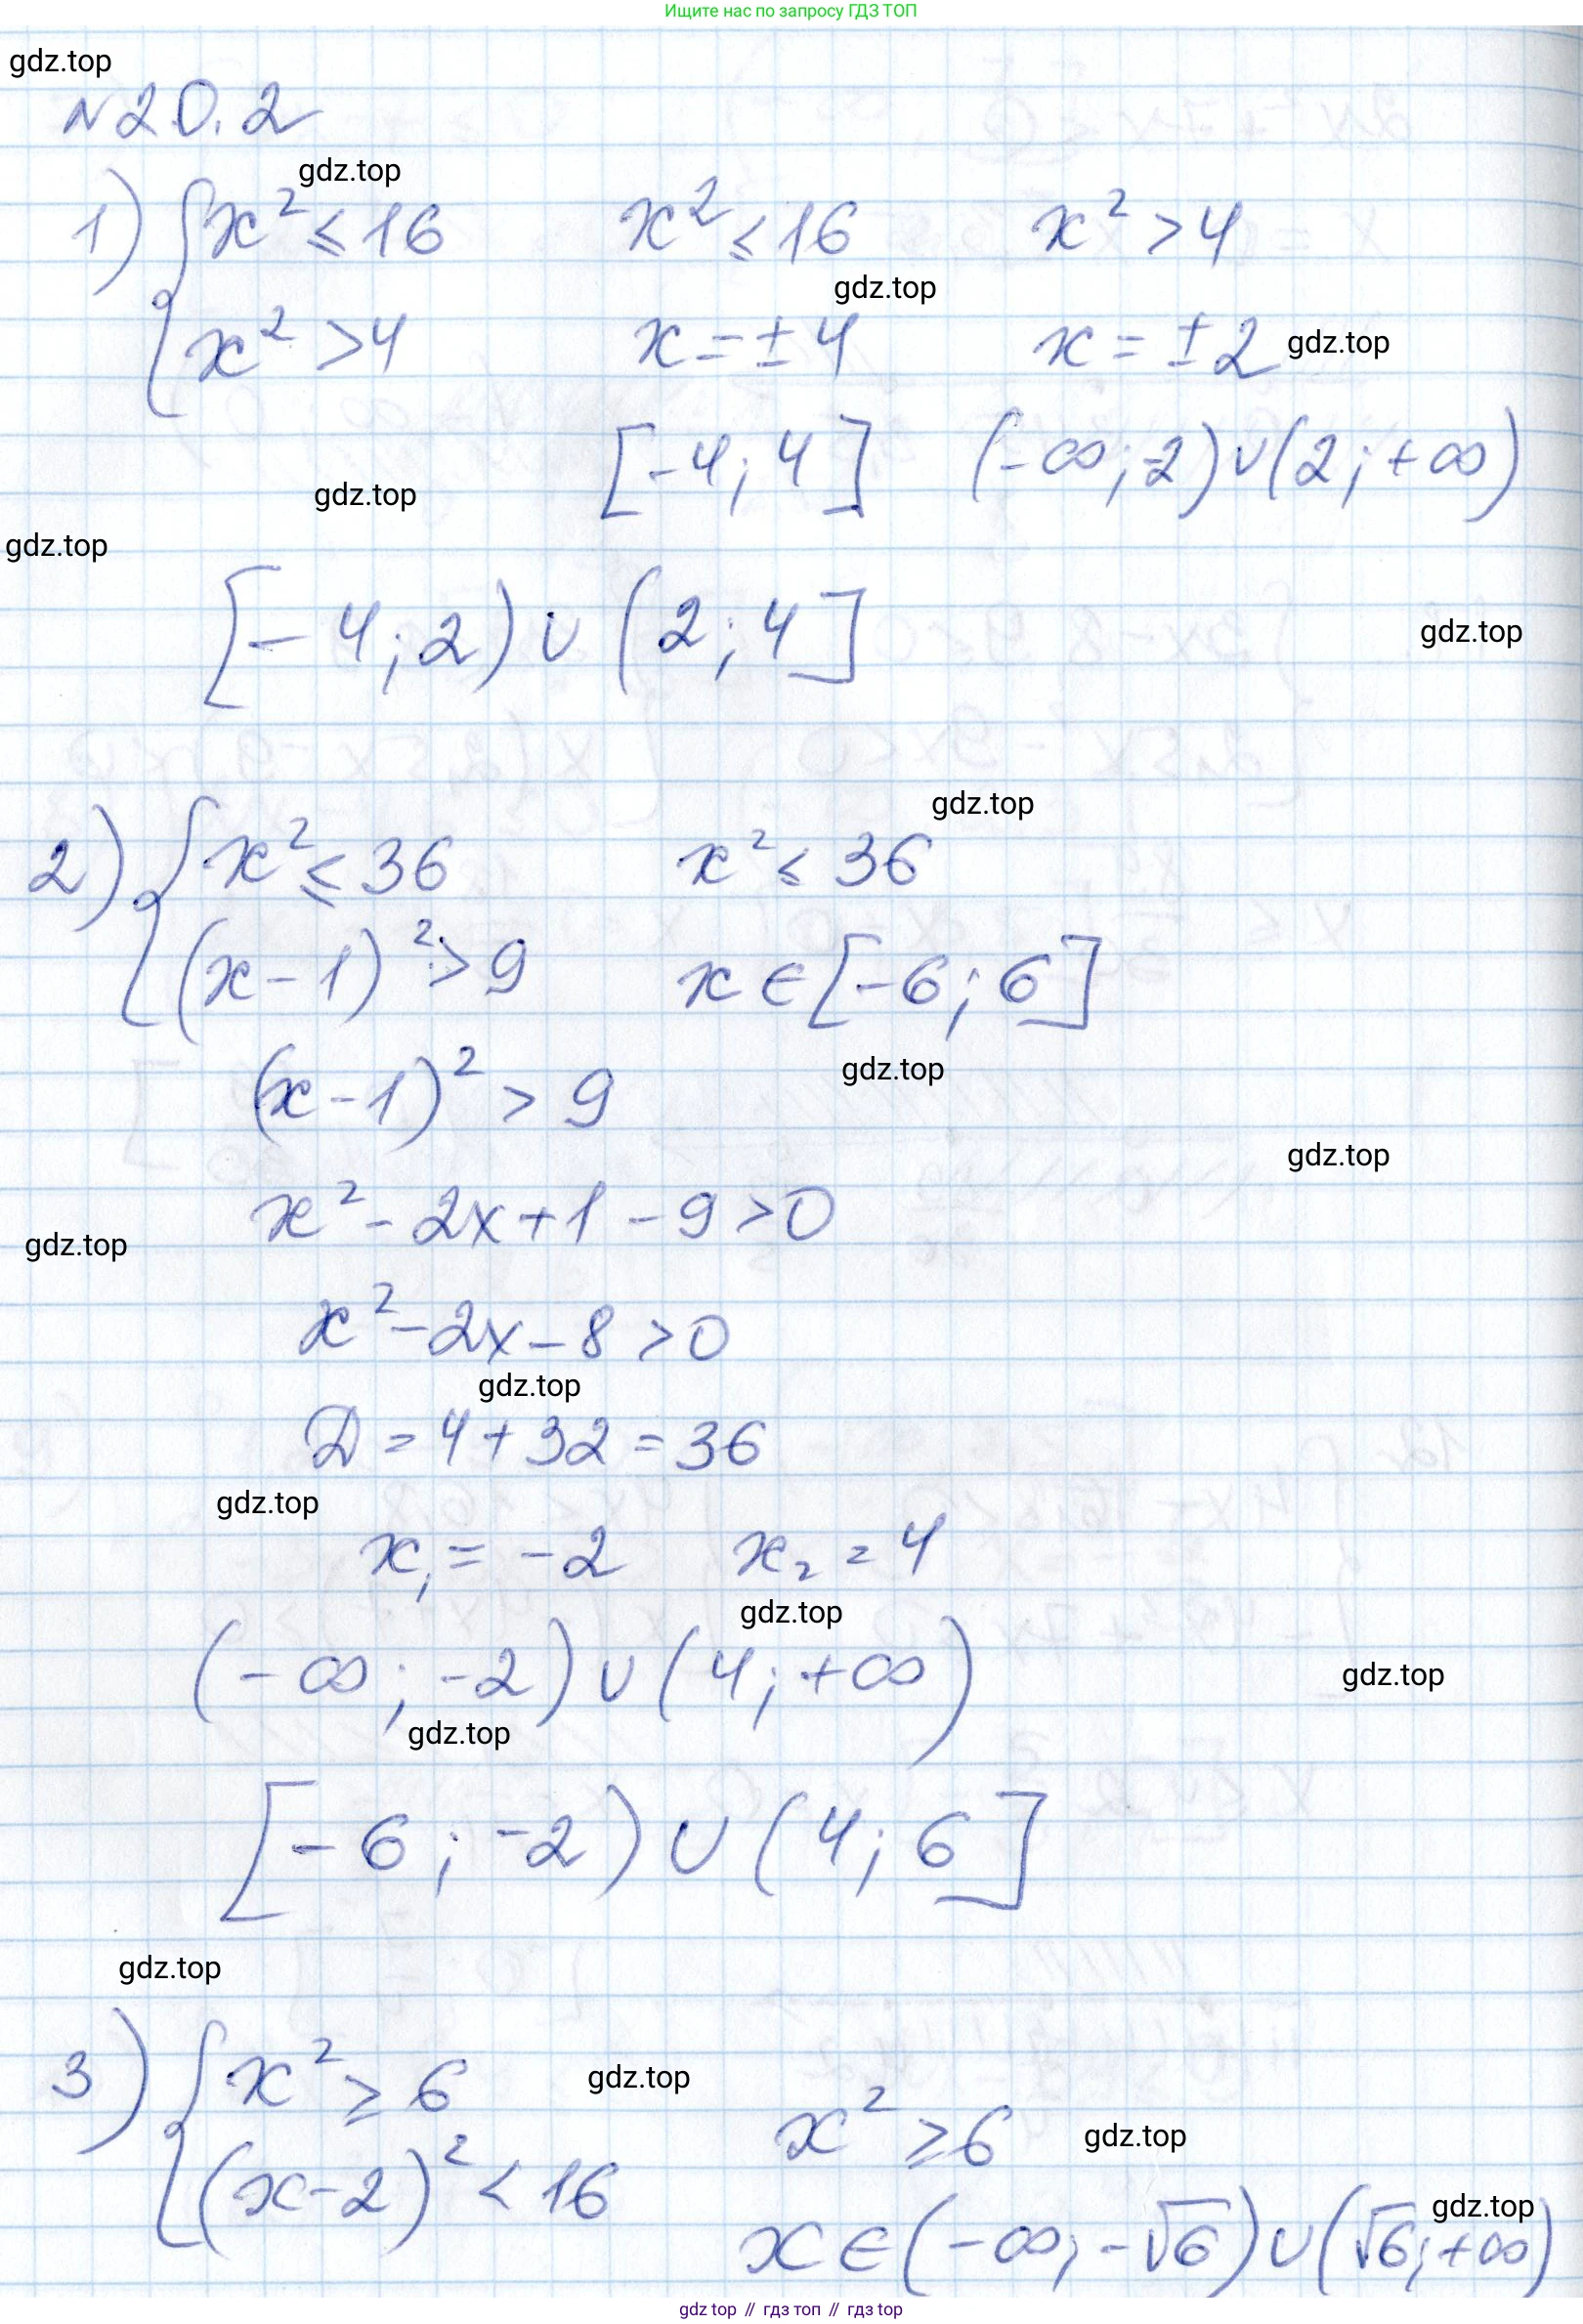 Ищите нас по запросу ГДЗ ТОП
gdz.top
N20.2
gdz.top
1) { x² ≤ 16    x² ≤ 16    x² > 4
gdz.top
x² > 4    x = ±4    x = ±2 gdz.top
[-4; 4]    (-∞; -2) ∪ (2; +∞)
gdz.top
gdz.top
[-4; 2) ∪ (2; 4]
gdz.top
gdz.top
2) { x² ≤ 36    x² ≤ 36
(x-1)² > 9    x ∈ [-6; 6]
gdz.top
(x-1)² > 9
gdz.top
x² - 2x + 1 - 9 > 0
gdz.top
x² - 2x - 8 > 0
gdz.top
D = 4 + 32 = 36
gdz.top
x₁ = -2    x₂ = 4
gdz.top
(-∞; -2) ∪ (4; +∞)
gdz.top
gdz.top
[-6; -2) ∪ (4; 6]
gdz.top
3) { x² ≥ 6
gdz.top
x² ≥ 6
gdz.top
(x-2)² < 16
gdz.top
x ∈ (-∞; -√6) ∪ (√6; +∞)
gdz top // гдз топ // гдз top